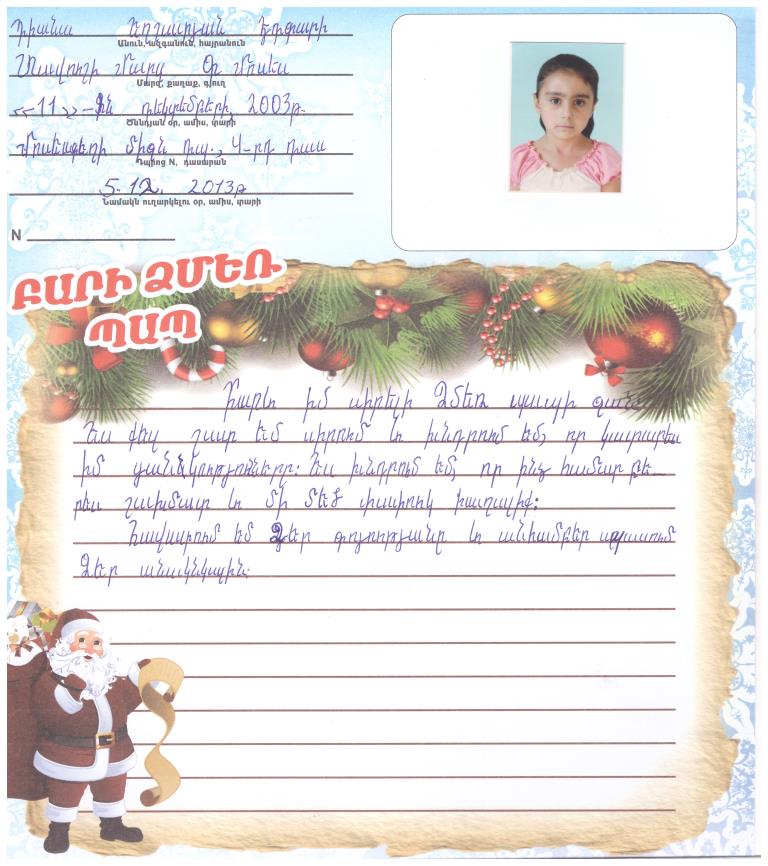 Դիանա Աղասյան Էդգարի
Անուն, ազգանուն, հայրանուն
Տավուշի մարզ Գ. Մոսես
Մարզ, քաղաք, գյուղ
«11»-ին դեկտեմբերի, 2003թ.
Ծննդյան օր, ամիս, տարի
Մոսեսգեղի միջն դպ., 4-րդ դաս
Դպրոց N, դասարան
5. 12. 2013թ
Նամակն ուղարկելու օր, ամիս, տարի
N
ԲԱՐԻ ՁՄԵՌ
ՊԱՊ
Բարև իմ սիրելի Ձմեռ պապի ջան:
Ես քեզ շատ եմ սիրում և խնդրում եմ, որ կատարես
իմ ցանկությունները: Ես խնդրում եմ, որ ինձ համար բե-
րես շախմատ և մի մեծ փափուկ խաղալիք:
Հավատում եմ Ձեր գոյությանը և անհամբեր սպասում
Ձեր անակնկալին: